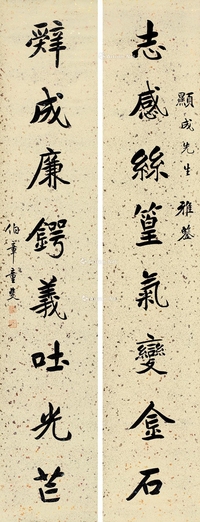 志感絲篁氣變金石
顯成先生雅鑒
辭成廉鍔義吐光芒
伯華童斐